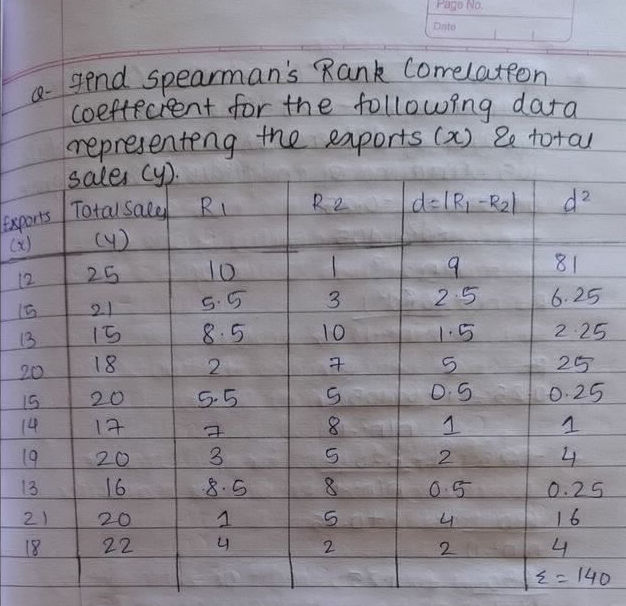 Page No.
Date
Q- Find Spearman's Rank Correlation
coefficient for the following data
representing the exports (x) & total
sales (y).
Exports (x) Total Sales (y) R1 R2 d=|R1-R2| d²
12 25 10 1 9 81
15 21 5.5 3 2.5 6.25
13 15 8.5 10 1.5 2.25
20 18 2 7 5 25
15 20 5.5 5 0.5 0.25
14 17 7 8 1 1
19 20 3 5 2 4
13 16 8.5 8 0.5 0.25
21 20 1 5 4 16
18 22 4 2 2 4
Σ = 140